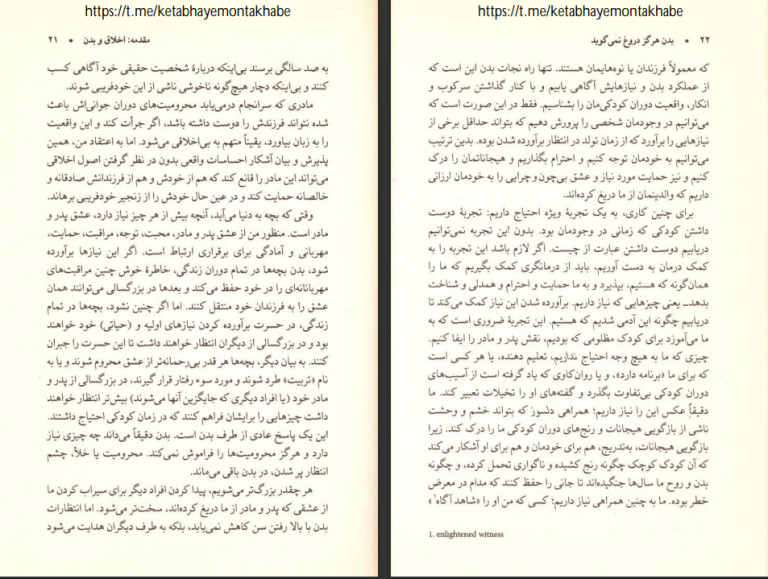 https://t.me/ketabhayemontakhabe
مقدمه: اخلاق و بدن • ۲۱
به صد سالگی برسند بی‌اینکه دربارهٔ شخصیت حقیقی خود آگاهی کسب
کنند و بی‌اینکه دچار هیچ‌گونه ناخوشی ناشی از این خودفریبی شوند.
مادری که سرانجام درمی‌یابد محرومیت‌های دوران جوانی‌اش باعث
شده نتواند فرزندش را دوست داشته باشد، اگر جرأت کند و این واقعیت
را به زبان بیاورد، یقیناً متهم به بی‌اخلاقی می‌شود. اما به اعتقاد من، همین
پذیرش و بیان آشکار احساسات واقعی بدون در نظر گرفتن اصول اخلاقی
می‌تواند این مادر را قانع کند که هم از خودش و هم از فرزندانش صادقانه و
خالصانه حمایت کند و در عین حال خودش را از زنجیر خودفریبی برهاند.
وقتی که بچه به دنیا می‌آید، آنچه بیش از هر چیز نیاز دارد، عشق پدر و
مادر است. منظور من از عشق پدر و مادر، محبت، توجه، مراقبت، حمایت،
مهربانی و آمادگی برای برقراری ارتباط است. اگر این نیازها برآورده
شود، بدن بچه‌ها در تمام دوران زندگی، خاطرهٔ خوش چنین مراقبت‌های
مهربانانه‌ای را در خود حفظ می‌کند و بعدها در بزرگسالی می‌توانند همان
عشق را به فرزندان خود منتقل کنند. اما اگر چنین نشود، بچه‌ها در تمام
زندگی، در حسرت برآورده کردن نیازهای اولیه و (حیاتی) خود خواهند
بود و در بزرگسالی از دیگران انتظار خواهند داشت تا این حسرت را جبران
کنند. به بیان دیگر، بچه‌ها هر قدر بی‌رحمانه‌تر از عشق محروم شوند و یا به
نام «تربیت» طرد شوند و مورد سوء رفتار قرار گیرند، در بزرگسالی از پدر و
مادر خود (یا افراد دیگری که جایگزین آنها می‌شوند) بیش‌تر انتظار خواهند
داشت چیزهایی را برایشان فراهم کنند که در زمان کودکی احتیاج داشتند.
این یک پاسخ عادی از طرف بدن است. بدن دقیقاً می‌داند چه چیزی نیاز
دارد و هرگز محرومیت‌ها را فراموش نمی‌کند. محرومیت یا خلأ، چشم
انتظار پر شدن، در بدن باقی می‌ماند.
هر چقدر بزرگ‌تر می‌شویم، پیدا کردن افراد دیگر برای سیراب کردن ما
از عشقی که پدر و مادر از ما دریغ کرده‌اند، سخت‌تر می‌شود. اما انتظارات
بدن با بالا رفتن سن کاهش نمی‌یابد، بلکه به طرف دیگران هدایت می‌شود
https://t.me/ketabhayemontakhabe
۲۲ • بدن هرگز دروغ نمی‌گوید
که معمولاً فرزندان یا نوه‌هایمان هستند. تنها راه نجات بدن این است که
از عملکرد بدن و نیازهایش آگاهی یابیم و با کنار گذاشتن سرکوب و
انکار، واقعیت دوران کودکی‌مان را بشناسیم. فقط در این صورت است که
می‌توانیم در وجودمان شخصی را پرورش دهیم که بتواند حداقل برخی از
نیازهایی را برآورد که از زمان تولد در انتظار برآورده شدن بوده. بدین ترتیب
می‌توانیم به خودمان توجه کنیم و احترام بگذاریم و هیجاناتمان را درک
کنیم و نیز حمایت مورد نیاز و عشق بی‌چون و چرایی را به خودمان ارزانی
داریم که والدینمان از ما دریغ کرده‌اند.
برای چنین کاری، به یک تجربهٔ ویژه احتیاج داریم: تجربهٔ دوست
داشتن کودکی که زمانی در وجودمان بود. بدون این تجربه نمی‌توانیم
دریابیم دوست داشتن عبارت از چیست. اگر لازم باشد این تجربه را به
کمک درمان به دست آوریم، باید از درمانگری کمک بگیریم که ما را
همان‌گونه که هستیم، بپذیرد و به ما حمایت و احترام و همدلی و شناخت
بدهد_ یعنی چیزهایی که نیاز داریم. برآورده شدن این نیاز کمک می‌کند تا
دریابیم چگونه این آدمی شدیم که هستیم. این تجربهٔ ضروری است که به
ما می‌آموزد برای کودک مظلومی که بودیم، نقش پدر و مادر را ایفا کنیم.
چیزی که ما به هیچ وجه احتیاج نداریم، تعلیم دهنده، یا هر کسی است
که برای ما «برنامه دارد»، و یا روان‌کاوی که یاد گرفته است از آسیب‌های
دوران کودکی بی‌تفاوت بگذرد و گفته‌های او را تخیلات تعبیر کند. ما
دقیقاً عکس این را نیاز داریم: همراهی دلسوز که بتواند خشم و وحشت
ناشی از بازگویی هیجانات و رنج‌های دوران کودکی ما را درک کند. زیرا
بازگویی هیجانات، به‌تدریج، هم برای خودمان و هم برای او آشکار می‌کند
که آن کودک کوچک چگونه رنج کشیده و ناگواری تحمل کرده، و چگونه
بدن و روح ما سال‌ها جنگیده‌اند تا جانی را حفظ کنند که مدام در معرض
خطر بوده. ما به چنین همراهی نیاز داریم؛ کسی که من او را «شاهد آگاه۱»
1. enlightened witness